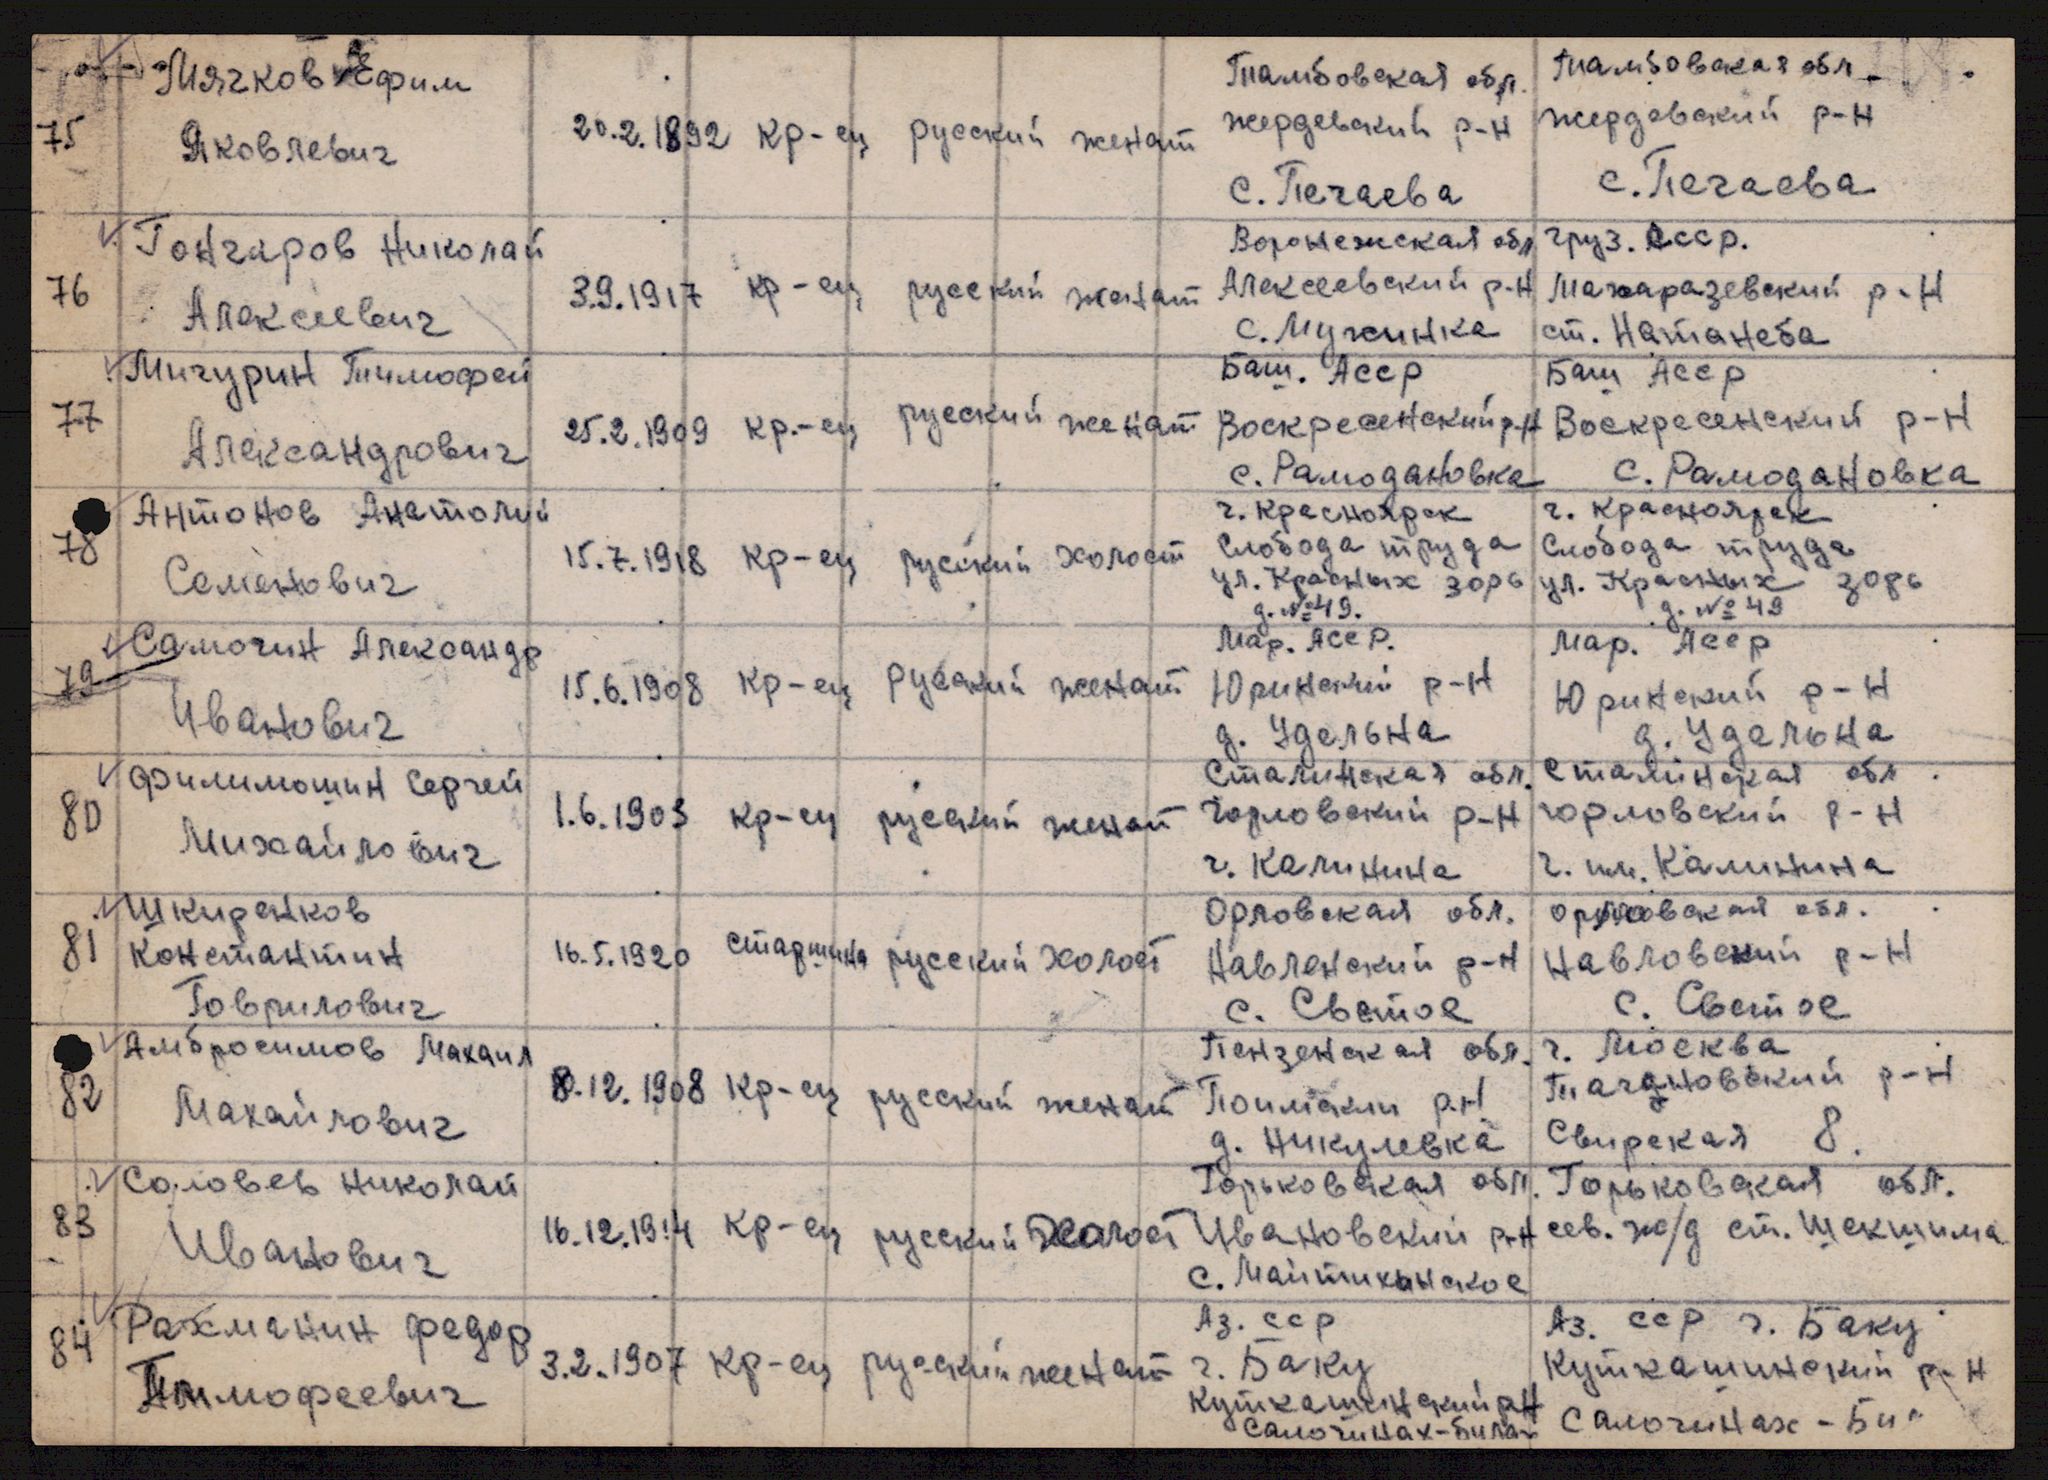 75 Мячков Ефим
Яковлевич
20.2.1892 кр-ец русский женат
Тамбовская обл.
жердевский р-н
с. Печаева
Тамбовская обл.
жердевский р-н
с. Печаева
76 Гончаров Николай
Алексеевич
3.9.1917 кр-ец русский женат
Воронежская обл
Алексеевский р-н
с. Мужинка
груз. ССР.
Махаразевский р-н
ст. Натанеба
77 Мичурин Тимофей
Александрович
25.2.1909 кр.-ец русский женат
Баш. АССР
Воскресенский р-н
с. Рамодановка
Баш АССР
Воскресенский р-н
с. Рамодановка
78 Антонов Анатолий
Семенович
15.7.1918 кр-ец русский холост
г. Красноярск
Слобода труда
ул. Красных зорь
д. № 49.
г. Красноярск
Слобода труда
ул. Красных зорь
д. № 49
79 Самочин Александр
Иванович
15.6.1908 кр-ец русский женат
Мар. АССР.
Юринский р-н
д. Удельна
Мар. АССР
Юринский р-н
д. Удельна
80 Филимошин Сергей
Михайлович
1.6.1903 кр-ец русский женат
Сталинская обл.
Горловский р-н
г. Калинина
Сталинская обл
горловский р-н
г. им. Калинина
81 Шкиренков
Константин
Гаврилович
16.5.1920 старшина русский холост
Орловская обл.
Навленский р-н
с. Светое
орловская обл.
Навловский р-н
с. Светое
82 Амбросимов Михаил
Михайлович
8.12.1908 кр-ец русский женат
Пензенская обл.
Поимскии р.н
д. Никулевка
г. Москва
Тагановский р-н
Свирская 8.
83 Соловьев Николай
Иванович
16.12.1914 кр-ец русский Холост
Горьковская обл.
Ивановский р-н
с. Майтихинское
Горьковская обл.
сев. ж/д ст. Шекшима
84 Рахманин Федор
Тимофеевич
3.2.1907 кр-ец русский женат
Аз. ССР
г. Баку
Куткашинский р-н
Самочинах-Билах
Аз. ССР г. Баку
Куткашинский р-н
Самочинах-Би